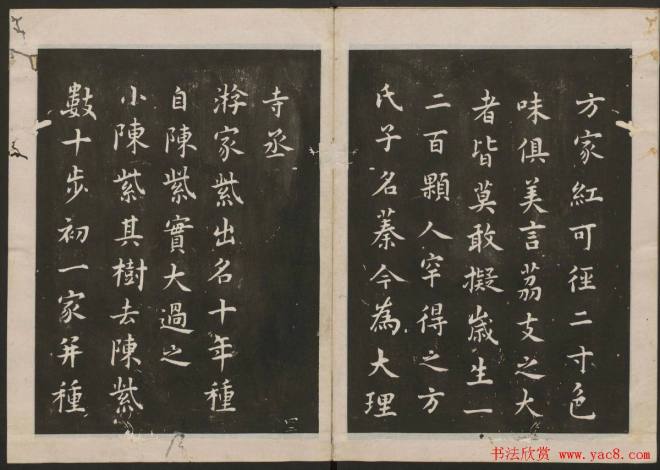 方家紅可徑二寸色
味俱美言荔支之大
者皆莫敢擬歲生一
二百顆人罕得之方
氏子名蓁今為大理
寺丞
游家紫出名十年種
自陳紫實大過之
小陳紫其樹去陳紫
數十步初一家并種
书法欣赏 www.yac8.com